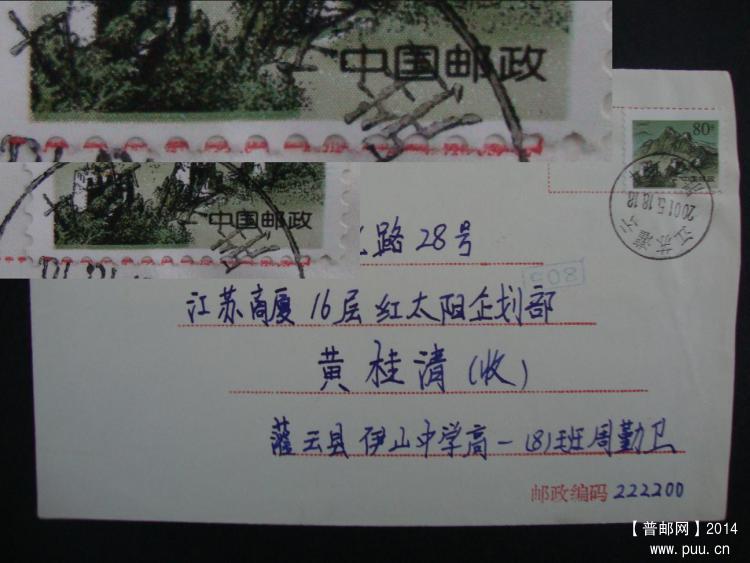 中国邮政
中国邮政
80分
江苏灌云
2001.5.18.18
路28号
803
江苏商厦16层红太阳企划部
黄桂清(收)
灌云县伊山中学高一(8)班周勤卫
邮政编码 222200
【普邮网】2014
www.puu.cn